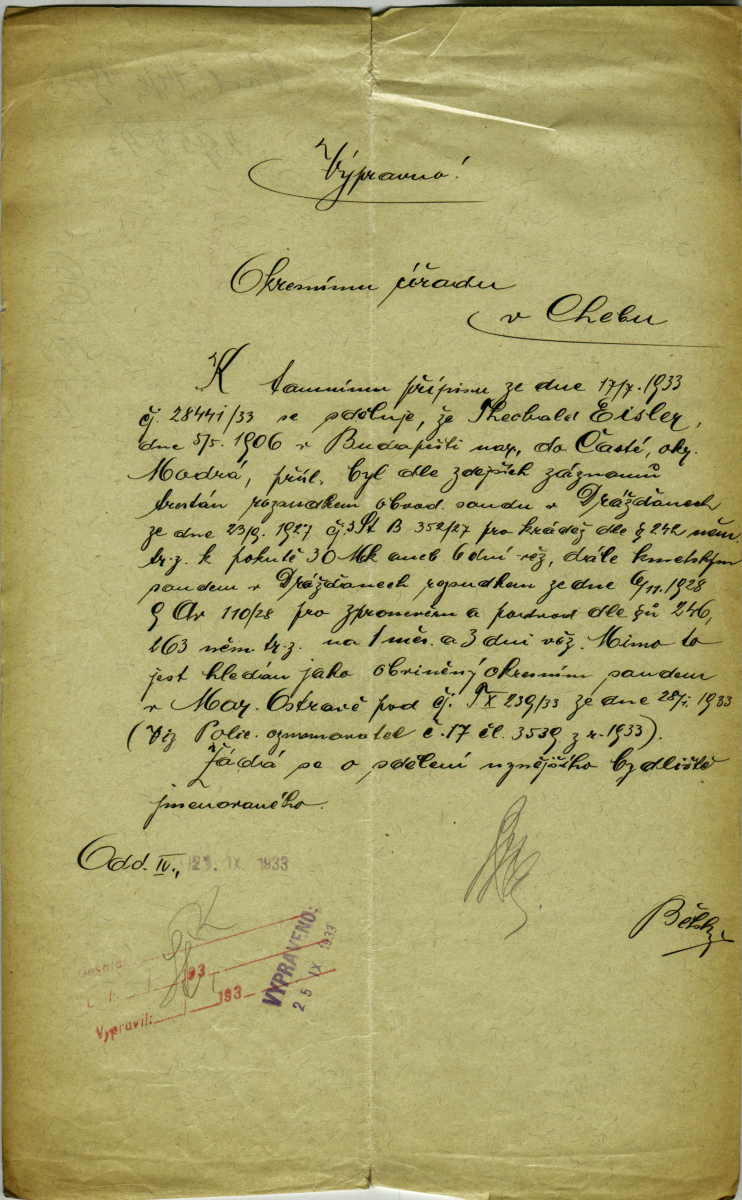 Výpravno!
Okresnímu úřadu
v Chebu
K tamnímu přípisu ze dne 17/7. 1933
čj. 28441/33 se sděluje, že Theobald Eisler,
dne 5/5. 1906 v Budapešti nar., do Časté, okr.
Modrá, přísl. byl dle zdejších záznamů
trestán rozsudkem obvod. soudu v Drážďanech
ze dne 23/9. 1927 čj. 3 St B 352/27 pro krádež dle § 242 něm.
tr. z. k pokutě 30 Mk aneb 6 dní věz., dále kmetským
soudem v Drážďanech rozsudkem ze dne 6/11. 1928
9 Av 110/28 pro zproneveru a podvod dle §ů 246,
263 něm. tr. z. na 1 měs. a 3 dni věz. Mimo to
jest hledán jako obviněný okresním soudem
v Mor. Ostravě pod čj. T X 239/33 ze dne 28/1. 1933
(Viz Polic. oznamovatel č. 17 čl. 3539 z r. 1933).
Žádá se o sdělení nynějšího bydliště
jmenovaného.
Odd. IV., 23. IX. 1933
193
Vypravil: 193
VYPRAVENO:
25 IX 1933